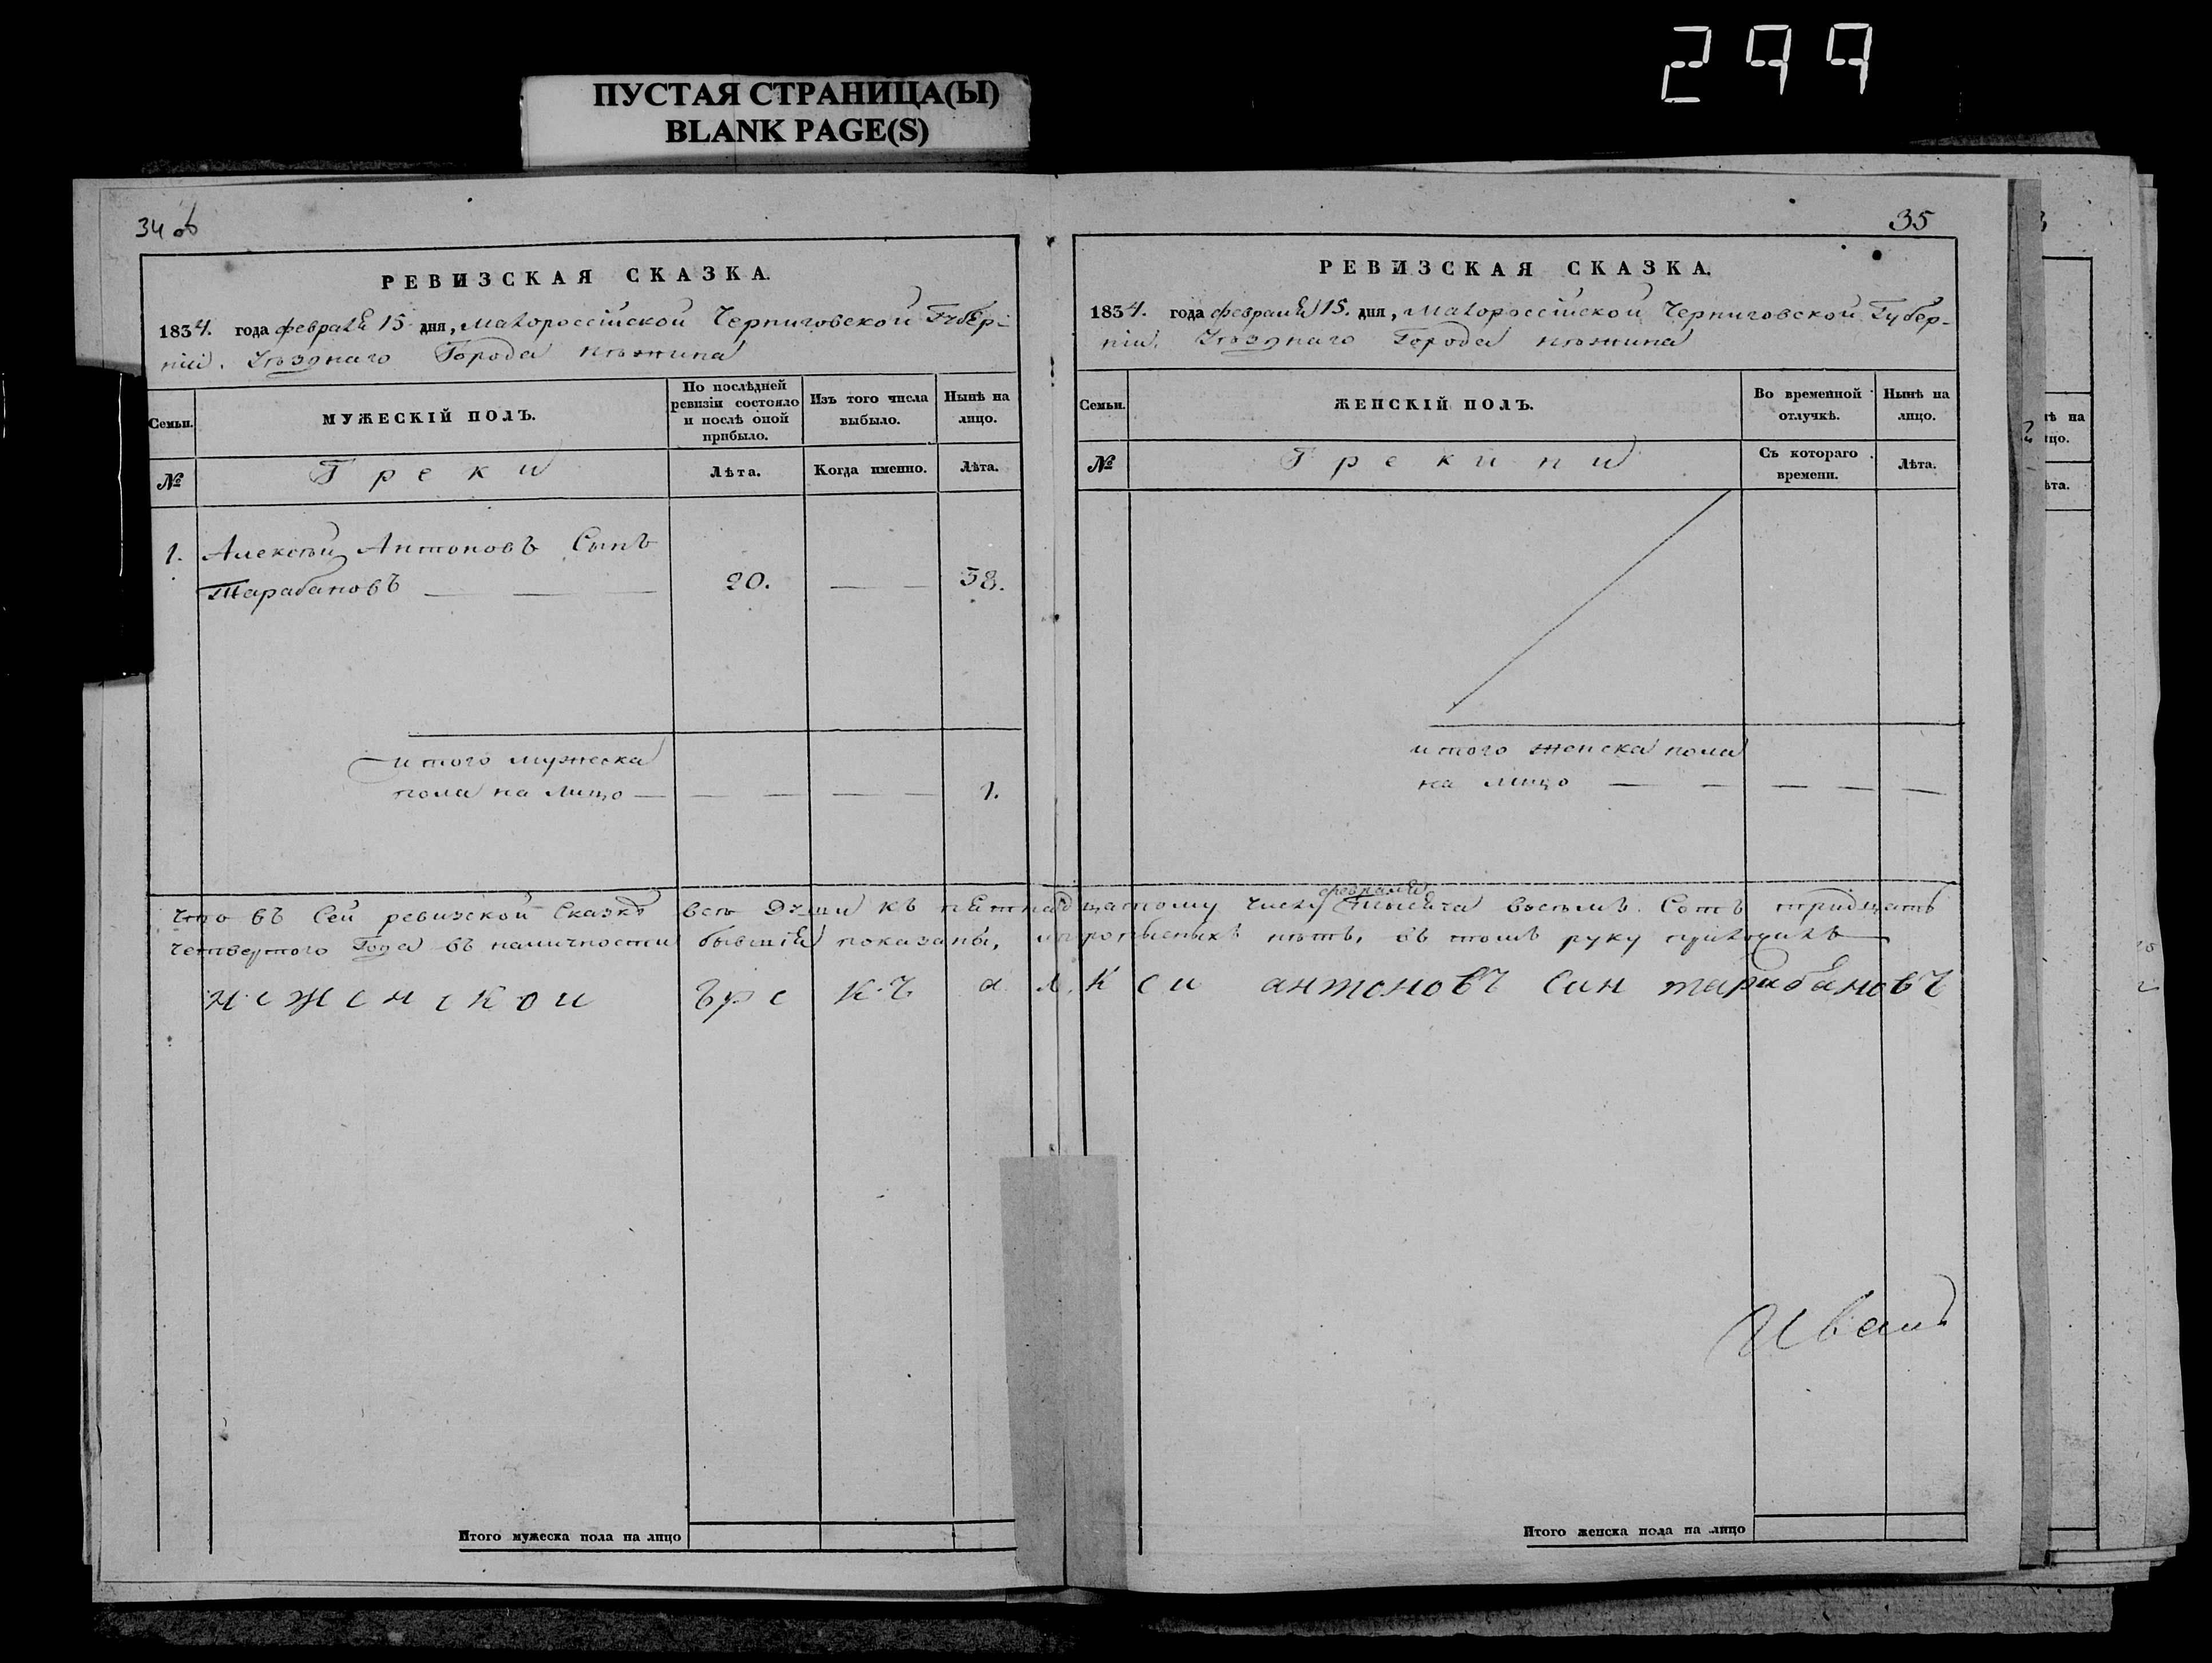 299
ПУСТАЯ СТРАНИЦА(Ы)
BLANK PAGE(S)
34 об
РЕВИЗСКАЯ СКАЗКА.
1834. года февраля 15 дня, Малороссійской Черниговской Губер-
ніи. Уѣзднаго Города Нѣжина
Семьи.
МУЖЕСКІЙ ПОЛЪ.
По послѣдней ревизіи состояло и послѣ оной прибыло.
Изъ того числа выбыло.
Нынѣ на лицо.
№
Греки
Лѣта.
Когда именно.
Лѣта.
1. Алексѣй Антоновъ Сынъ
Тарабановъ — — 20. — — 38.
итого мужеска
пола на лицо — — — — — 1.
35
РЕВИЗСКАЯ СКАЗКА.
1834. года февраля 15. дня, Малороссійской Черниговской Губер-
ніи. Уѣзднаго Города Нѣжина
Семьи.
ЖЕНСКІЙ ПОЛЪ.
Во временной отлучкѣ.
Нынѣ на лицо.
№
Грекини
Съ котораго времени.
Лѣта.
итого женска пола
на лицо — — — — —
февраля
Что въ Сей ревизской Сказкѣ всѣ Души къ пятнадцатому числу тысяча восемь Сотъ тридцать
четвертого Года въ наличности бывшія показаны, и прописныхъ нѣтъ, въ томъ руку
неженскои грекъ алкси антоновъ син тарабановъ
Иванъ
Итого мужеска пола на лицо
Итого женска пола на лицо